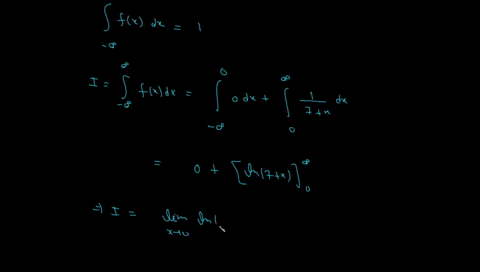 ∫_{-∞} f(x) dx = 1
I = ∫_{-∞}^{∞} f(x) dx = ∫_{-∞}^{0} 0 dx + ∫_{0}^{∞} 1/(7+x) dx
= 0 + [ln(7+x)]_{0}^{∞}
→ I = lim_{x→0} ln(